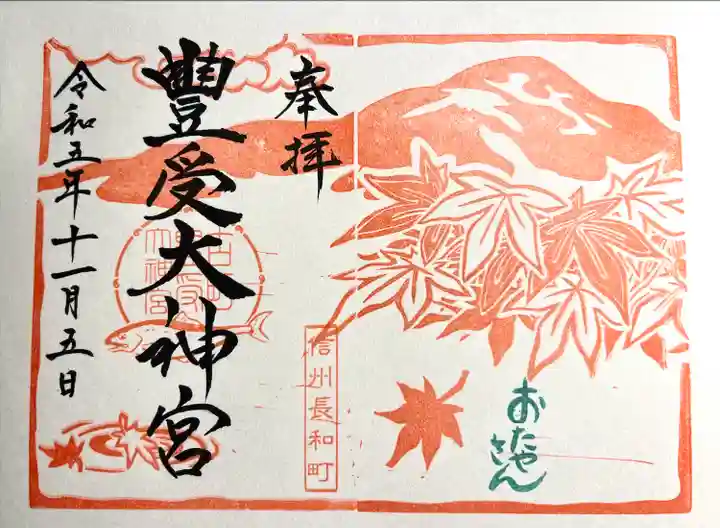 奉拝
豐受大神宮
令和五年十一月五日
信州長和町
おたや
さん